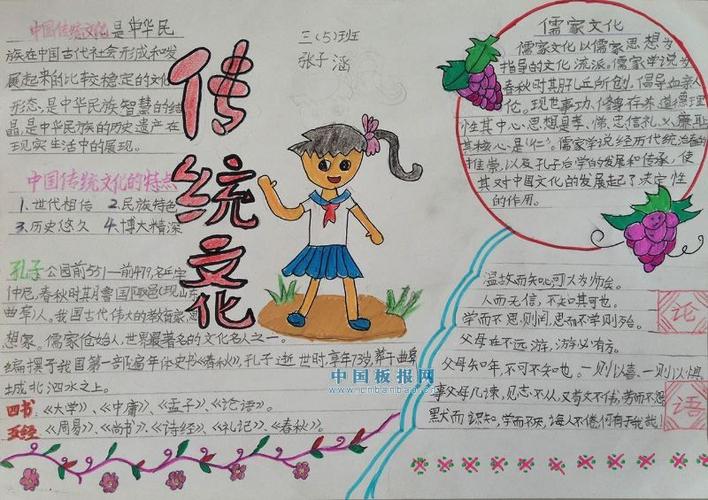 中国传统文化是中华民
族在中国古代社会形成和发
展起来的比较稳定的文化
形态,是中华民族智慧的结
晶,是中华民族的历史遗产在
现实生活中的展现。
中国传统文化的特点
1.世代相传 2.民族特色
3.历史悠久 4.博大精深
孔子公园前551一前479,名丘字
仲尼,春秋时期鲁国陬邑(现山东
曲阜)人。我国古代伟大的教育家,思
想家、儒家创始人,世界最著名的文化名人之一。
编撰了我国第一部编年体史书《春秋》,孔子逝世时,享年73岁,葬于曲阜
城北泗水之上。
四书《大学》、《中庸》、《孟子》、《论语》。
五经《周易》、《尚书》、《诗经》、《礼记》、《春秋》。
传统文化
三(5)班
张子涵
儒家文化
儒家文化以儒家思想为
指导的文化流派。儒家学说为
春秋时期孔丘所创,倡导血亲人
伦。现世事功,修身存养,道德理
性其中心思想是孝、悌、忠信礼义廉耻
其核心是“仁”。儒家学说经历代统治者的
推崇,以及孔子后学的发展和传承,使
其对中国文化的发展起了决定性
的作用。
温故而知心,可以为师矣。
人而无信,不知其可也。
学而不思,则罔,思而不学则殆。
父母在不远游,游必有方。
父母知年,不可不知也。一则以喜,一则以惧
事父母几谏,见志不从,又敬不违,劳而不怨
默而识知,学而不厌,诲人不倦,何有于我哉!
论
语
中国板报网
www.cnbanbao.cn